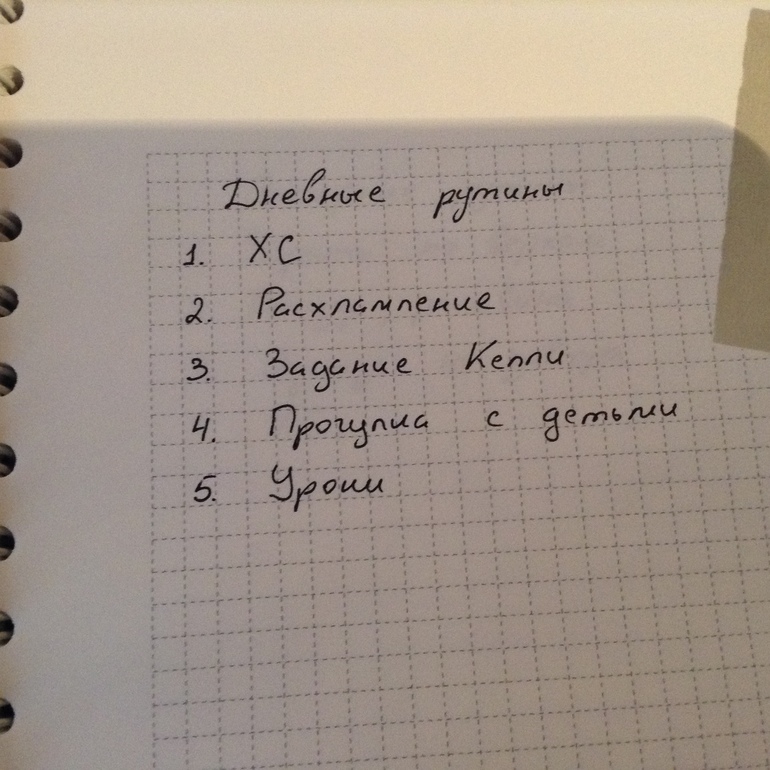 Дневные рутины
1. ХС
2. Расхламление
3. Задание Келли
4. Прогулка с детьми
5. Уроки